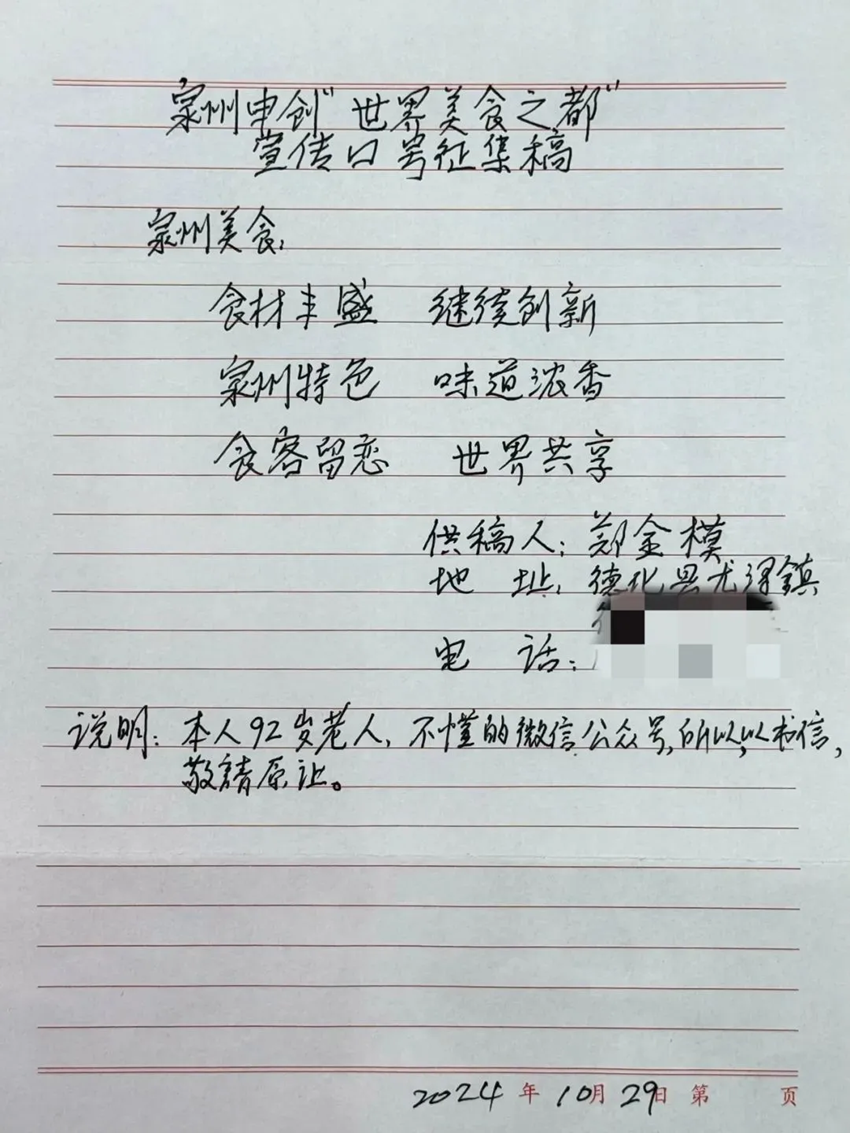 泉州申创“世界美食之都”
宣传口号征集稿
泉州美食:
食材丰盛 继续创新
泉州特色 味道浓香
食客留恋 世界共享
供稿人:郑金模
地 址:德化县尤浔鎮
电 话:
说明:本人92岁老人,不懂的微信公众号,所以,以书信,
敬請原让。
2024年10月29日 第 页